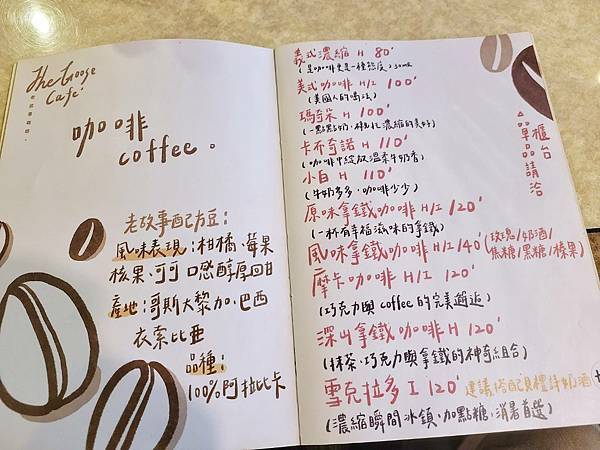 The Goose
Cafe'
老故事咖啡.
咖啡
coffee.
老故事配方豆：
風味表現：柑橘、莓果
核果、可可 口感醇厚回甘
產地：哥斯大黎加、巴西
衣索比亞
品種：
100%阿拉比卡
義式濃縮 H 80'
美式咖啡 H/I 100'
(美國人的喝法)
瑪奇朵 H 100'
(一點點奶,襯托濃縮的美好)
卡布奇諾 H 110'
(咖啡中綻放溫柔牛奶香)
小白 H 110'
(牛奶多多,咖啡少少)
原味拿鐵咖啡 H/I 120'
(一杯有幸福滋味的拿鐵)
風味拿鐵咖啡 H/I 140' (玫瑰/奶酒/
焦糖/黑糖/榛果)
摩卡咖啡 H/I 120'
(巧克力與coffee的完美邂逅)
深山拿鐵咖啡 H 120'
(抹茶、巧克力與拿鐵的神奇組合)
雪克拉多 I 120' 建議搭配貝禮詩奶酒
(濃縮瞬間冰鎮、加點糖,消暑首選)
單品請洽
櫃台